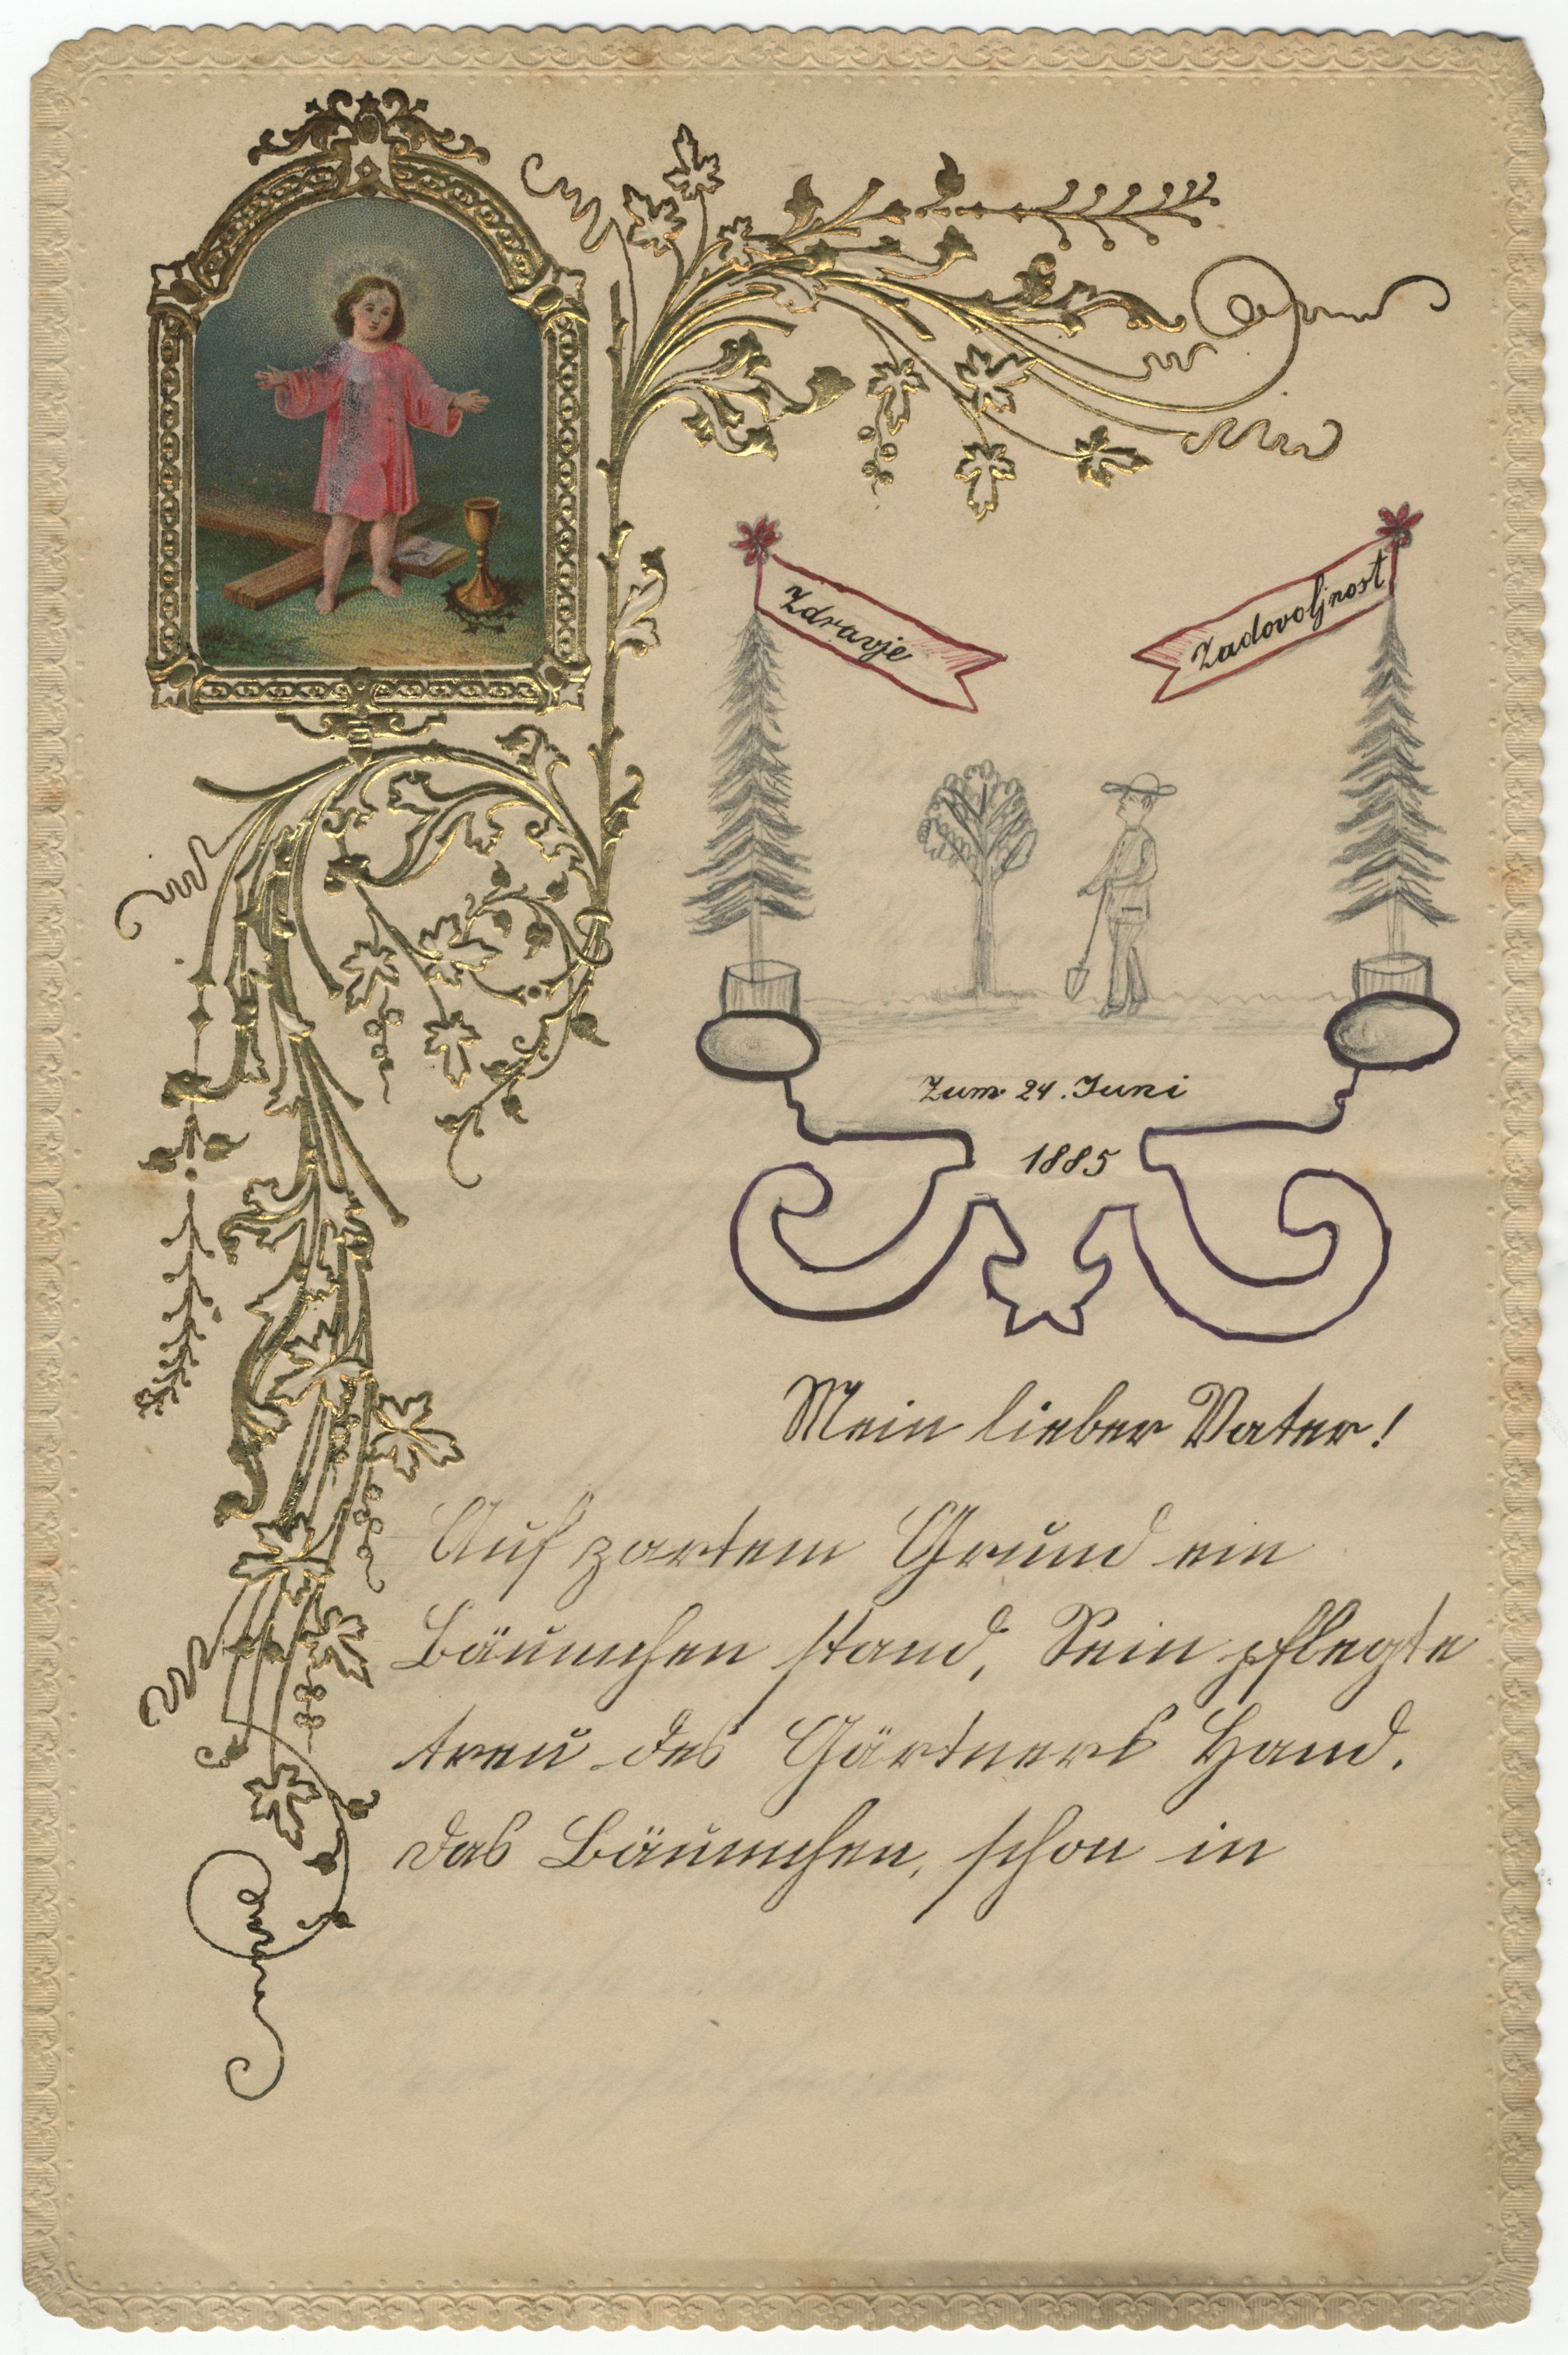 Zdravje
Zadovoljnost
Zum 24. Juni
1885
Mein lieber Vater!
Auf zartem Grund ein
Bäumchen stand, Sein pflegte
treu des Gärtners Hand.
Das Bäumchen, schon in